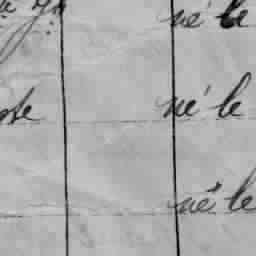 né le
né le
né le